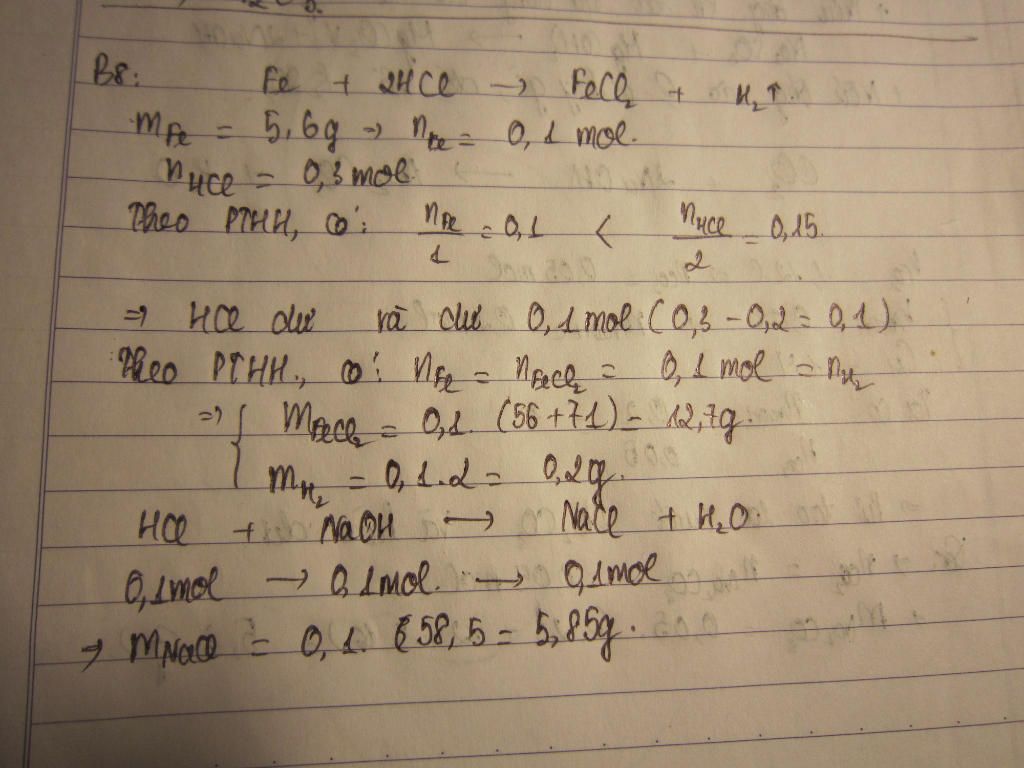 B8: Fe + 2HCl → FeCl₂ + H₂↑.
m_Fe = 5,6g → n_Fe = 0,1 mol.
n_HCl = 0,3 mol.
Theo PTHH, có: n_Fe/1 = 0,1 < n_HCl/2 = 0,15.
⇒ HCl dư và dư 0,1 mol (0,3 - 0,2 = 0,1)
Theo PTHH., có: n_Fe = n_FeCl₂ = 0,1 mol = n_H₂
⇒ { m_FeCl₂ = 0,1. (56+71) = 12,7g.
m_H₂ = 0,1.2 = 0,2g.
HCl + NaOH → NaCl + H₂O
0,1mol → 0,1mol. → 0,1mol
⇒ m_NaCl = 0,1. 58,5 = 5,85g.